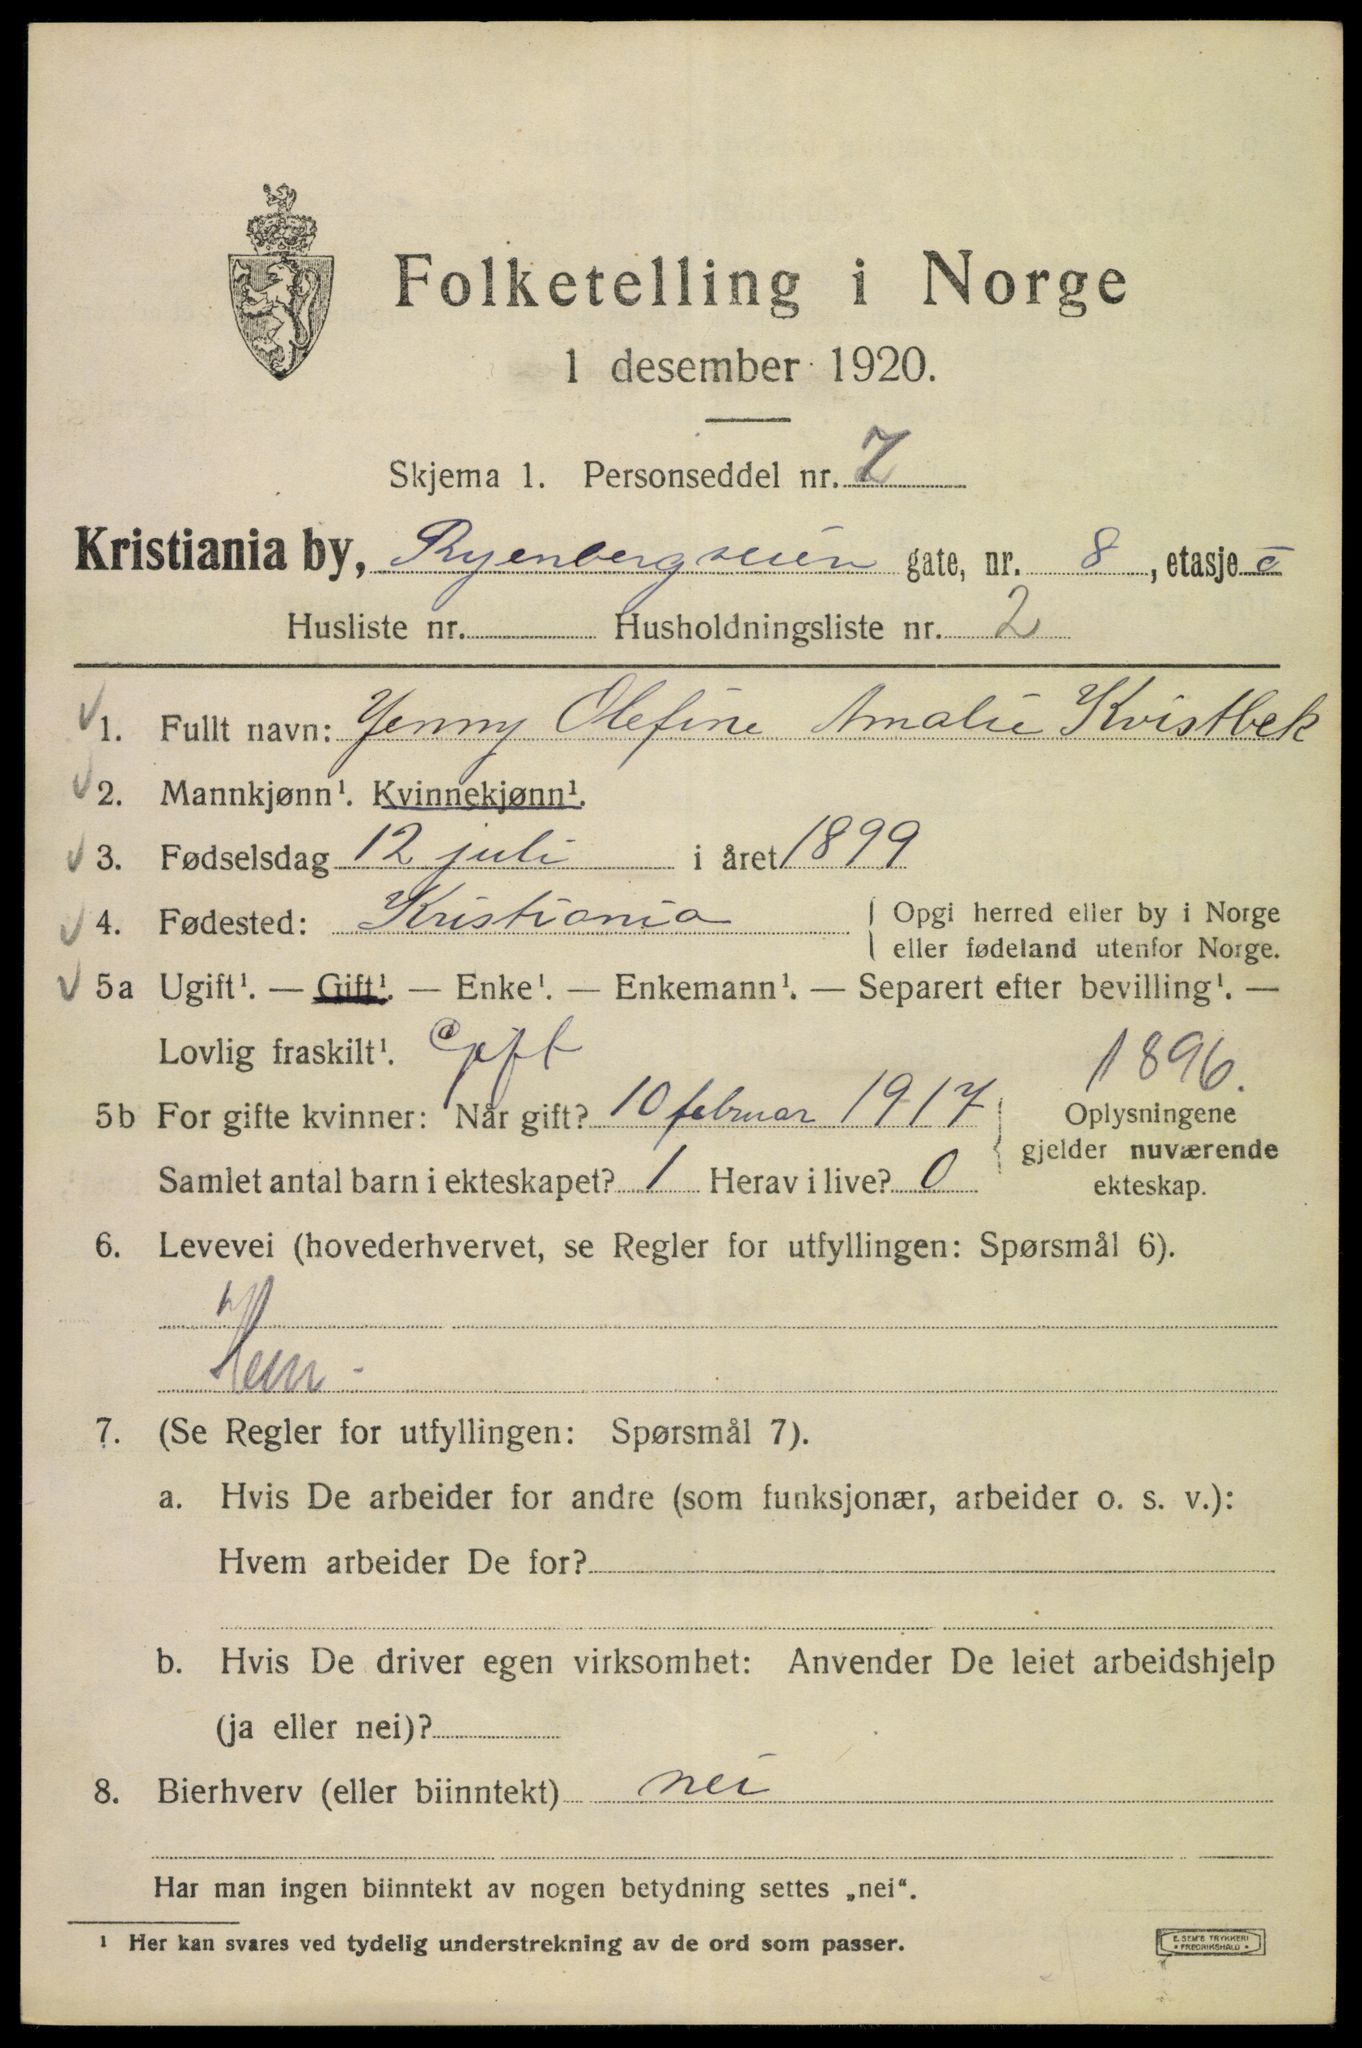 Folketelling i Norge
1 desember 1920.
Skjema 1. Personseddel nr. 7
Kristiania by, Ryenbergveien gate, nr. 8, etasje
Husliste nr. Husholdningsliste nr. 2
1. Fullt navn: Yenny Olefine Amalie Kvistbek
2. Mannkjønn¹. Kvinnekjønn¹.
3. Fødselsdag 12 juli i året 1899
4. Fødested: Kristiania { Opgi herred eller by i Norge
eller fødeland utenfor Norge.
5a Ugift¹. — Gift¹. — Enke¹. — Enkemann¹. — Separert efter bevilling¹. —
Lovlig fraskilt¹. Gift 1896.
5b For gifte kvinner: Når gift? 10 februar 1917
Samlet antal barn i ekteskapet? 1 Herav i live? 0
Oplysningene
gjelder nuværende
ekteskap.
6. Levevei (hovederhvervet, se Regler for utfyllingen: Spørsmål 6).
7. (Se Regler for utfyllingen: Spørsmål 7).
a. Hvis De arbeider for andre (som funksjonær, arbeider o. s. v.):
Hvem arbeider De for?
b. Hvis De driver egen virksomhet: Anvender De leiet arbeidshjelp
(ja eller nei)?
8. Bierhverv (eller biinntekt) nei
Har man ingen biinntekt av nogen betydning settes „nei“.
¹ Her kan svares ved tydelig understrekning av de ord som passer.
E. SEM'S TRYKKERI
• FREDRIKSHALD •